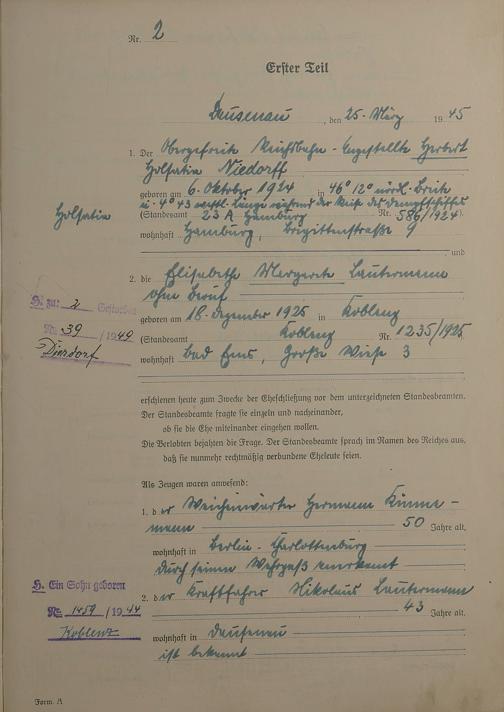 Nr. 2
Erster Teil
Dausenau, den 25. März 1945
1. Der Obergefreite Reichsbahn-Angestellte Herbert
Holsatia Niedorff
geboren am 6. Oktober 1924 in 46° 12° nördl. Breite
u. 4° 43 westl. Länge während der Reise des Dampfschiffes
Holsatia
(Standesamt 23 A Hamburg Nr. 586/1924).
wohnhaft Hamburg, Brigittenstraße 9
und
2. die Elisabeth Margarete Lautermann
ohne Beruf
geboren am 18. Dezember 1925 in Koblenz
(Standesamt Koblenz Nr. 1235/1925
wohnhaft Bad Ems, Große Wiese 3
H. zu: 2 Gestorben
Nr. 39 / 1949
Dierdorf
erschienen heute zum Zwecke der Eheschließung vor dem unterzeichneten Standesbeamten.
Der Standesbeamte fragte sie einzeln und nacheinander,
ob sie die Ehe miteinander eingehen wollen.
Die Verlobten bejahten die Frage. Der Standesbeamte sprach im Namen des Reiches aus,
daß sie nunmehr rechtmäßig verbundene Eheleute seien.
Als Zeugen waren anwesend:
1. der Weichenwärter Hermann
mann 50 Jahre alt,
wohnhaft in Berlin-Charlottenburg
durch seinen Wehrpaß anerkannt
2. der Kraftfahrer Nikolaus Lautermann
43 Jahre alt,
wohnhaft in Dausenau
ist bekannt
H. Ein Sohn geboren
Nr. 1459 / 1944
Koblenz
Form. A